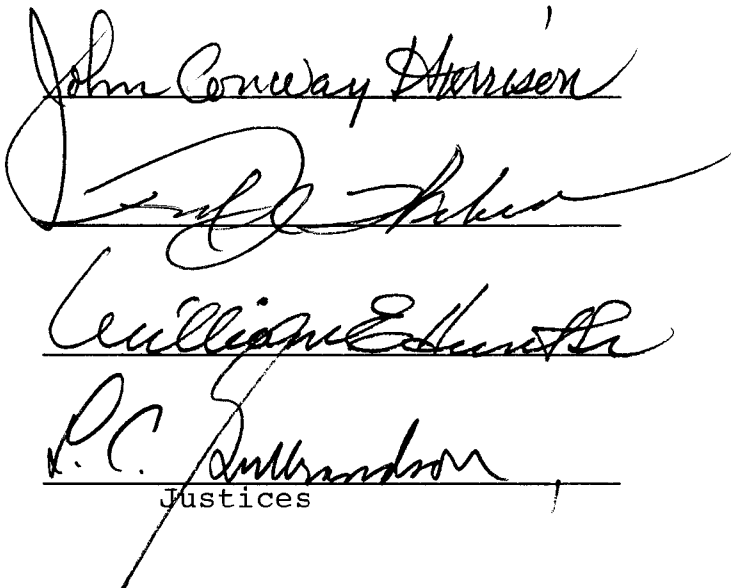 John Conway Harrison
William E Hunter
L. C. Gulbrandson
Justices